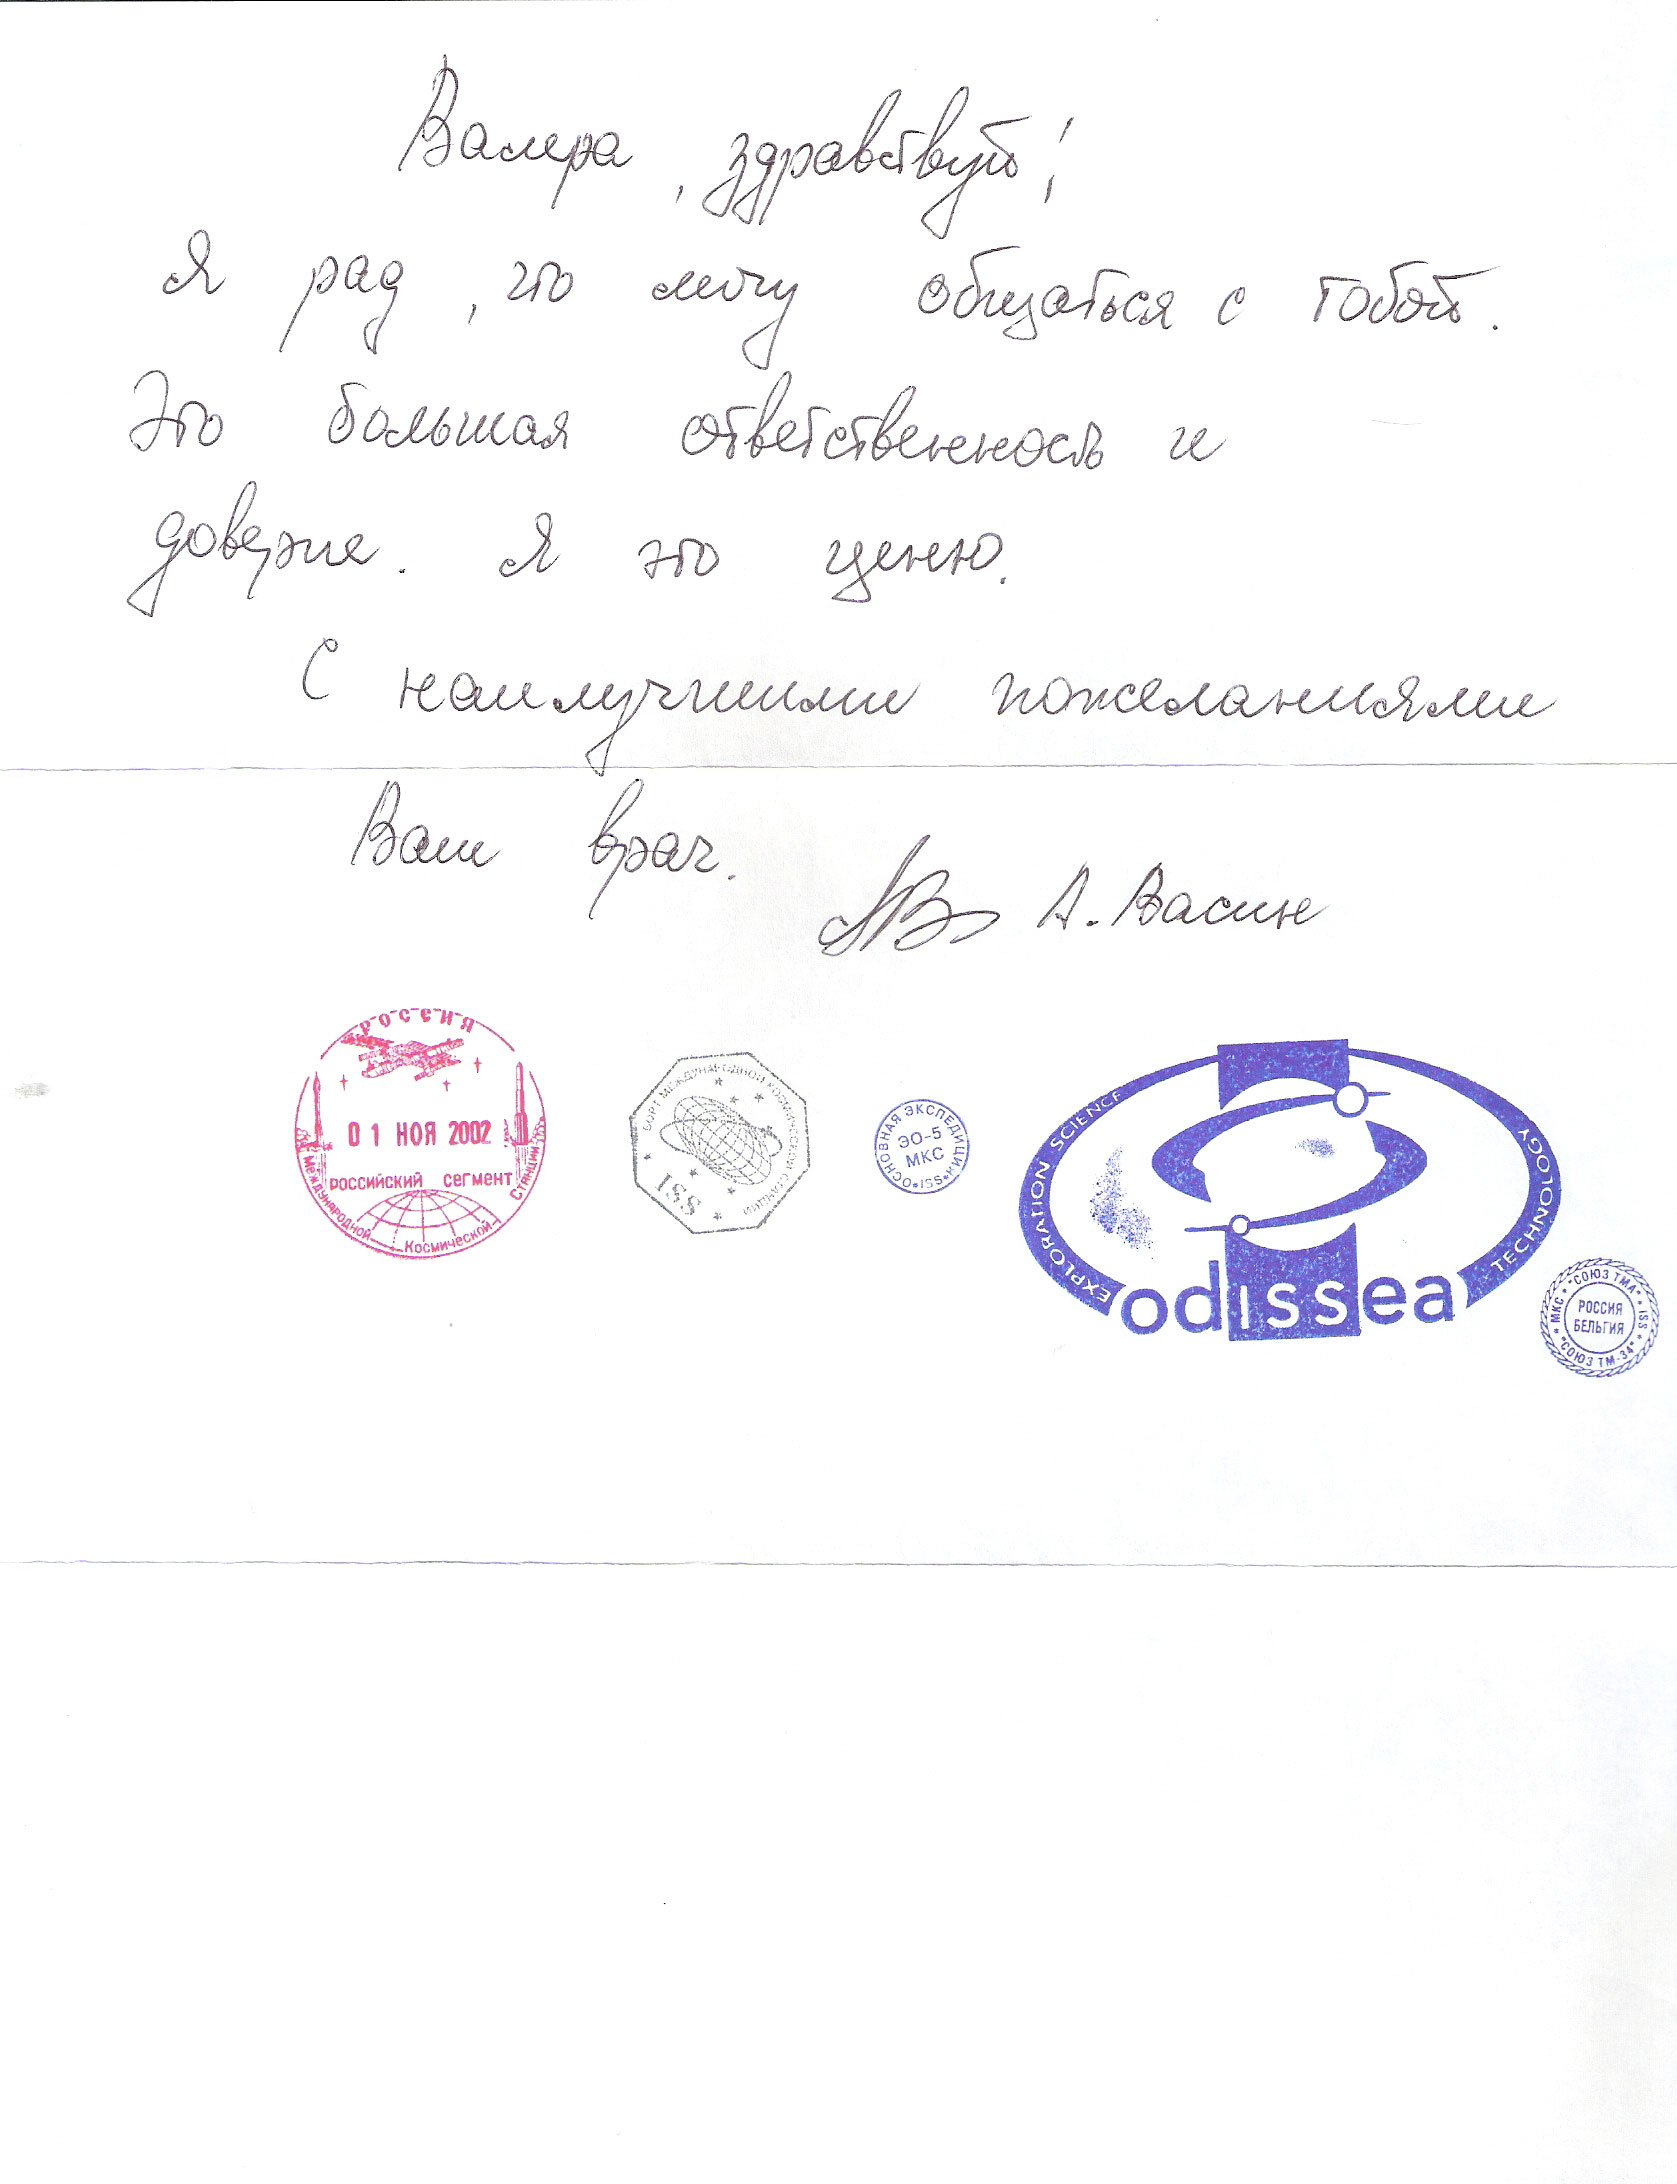 Валера, здравствуй!
Я рад, что могу общаться с тобой.
Это большая ответственность и
доверие. Я это ценю.
С наилучшими пожеланиями
Ваш врач.
А. Васин
РОССИЯ
01 НОЯ 2002
РОССИЙСКИЙ СЕГМЕНТ
Международной Космической Станции
БОРТ МЕЖДУНАРОДНОЙ КОСМИЧЕСКОЙ СТАНЦИИ
ISS
ОСНОВНАЯ ЭКСПЕДИЦИЯ
ЭО-5
МКС
ISS
EXPLORATION SCIENCE TECHNOLOGY
odissea
МКС "СОЮЗ ТМА" ISS
РОССИЯ
БЕЛЬГИЯ
"СОЮЗ ТМ-34"